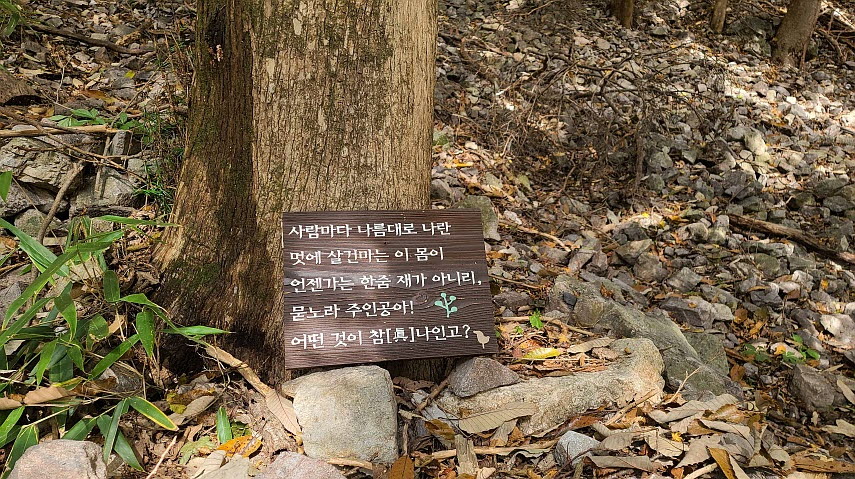 사람마다 나름대로 나란
멋에 살건마는 이 몸이
언젠가는 한줌 재가 아니리,
묻노라 주인공아!
어떤 것이 참[眞]나인고?